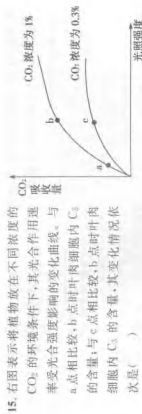 15. 右图表示将植物放在不同浓度的
CO₂ 的环境条件下,其光合作用速
率受光合强度影响的变化曲线。与
a 点相比较,b 点时叶肉细胞内 C₃
的含量;与 c 点相比较,b 点时叶肉
细胞内 C₃ 的含量,其变化情况依
次是( )
CO₂ 吸收量
CO₂ 浓度为 1%
CO₂ 浓度为 0.3%
b
c
a
光照强度